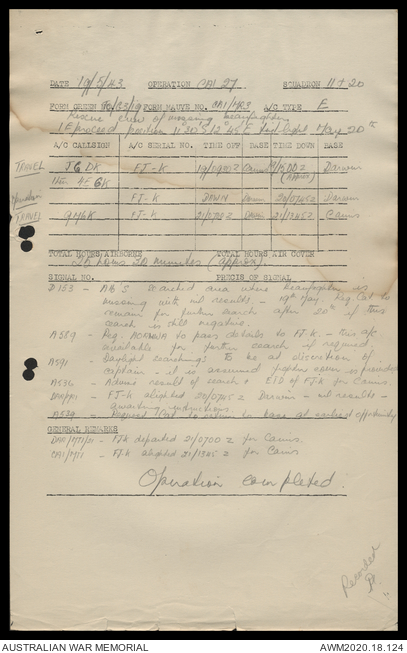 DATE 19/5/43 OPERATION CAI 27 SQUADRON 11 + 20
FORM GREEN NO. FORM MAUVE NO. CAI/1403 A/C TYPE E
Rescue crew of missing beaufighter
1 E proceed position 1130 S 12 45 E first light May 20th
A/C CALLSIGN A/C SERIAL NO. TIME OFF BASE TIME DOWN BASE
TRAVEL J6DK FJ-K 19/0900Z Cairns 19/1500Z (APPROX) Darwin
6K FJ-K DAWN Darwin 20/0745Z Darwin
TRAVEL 9M6K FJ-K 21/0700Z Darwin 21/1345Z Cairns
TOTAL HOURS AIRBORNE TOTAL HOURS AIR COVER
hours 30 minutes (approx)
SIGNAL NO. PRECIS OF SIGNAL
D153 - searched area where Beaufighter is
missing with nil results. - 19th May. Req. Cat to
remain for further search after 20th if this
search is still negative.
A589 - Req. to pass details to FJ-K - this a/c
available for further search if required.
A591 - Daylight searching to be at discretion of
captain - it is assumed fighter cover is provided
A636 - result of search & ETD of FJK for Cairns.
- FJ-K alighted 20/0745Z Darwin - nil results -
awaiting instructions.
A539 - Request Cat to return to base at earliest opportunity
GENERAL REMARKS
DAR/M71/21 - FJK departed 21/0700Z for Cairns.
CAI/M/1 - FJK alighted 21/1345Z for Cairns
Operation completed.
Recorded
AUSTRALIAN WAR MEMORIAL AWM2020.18.124